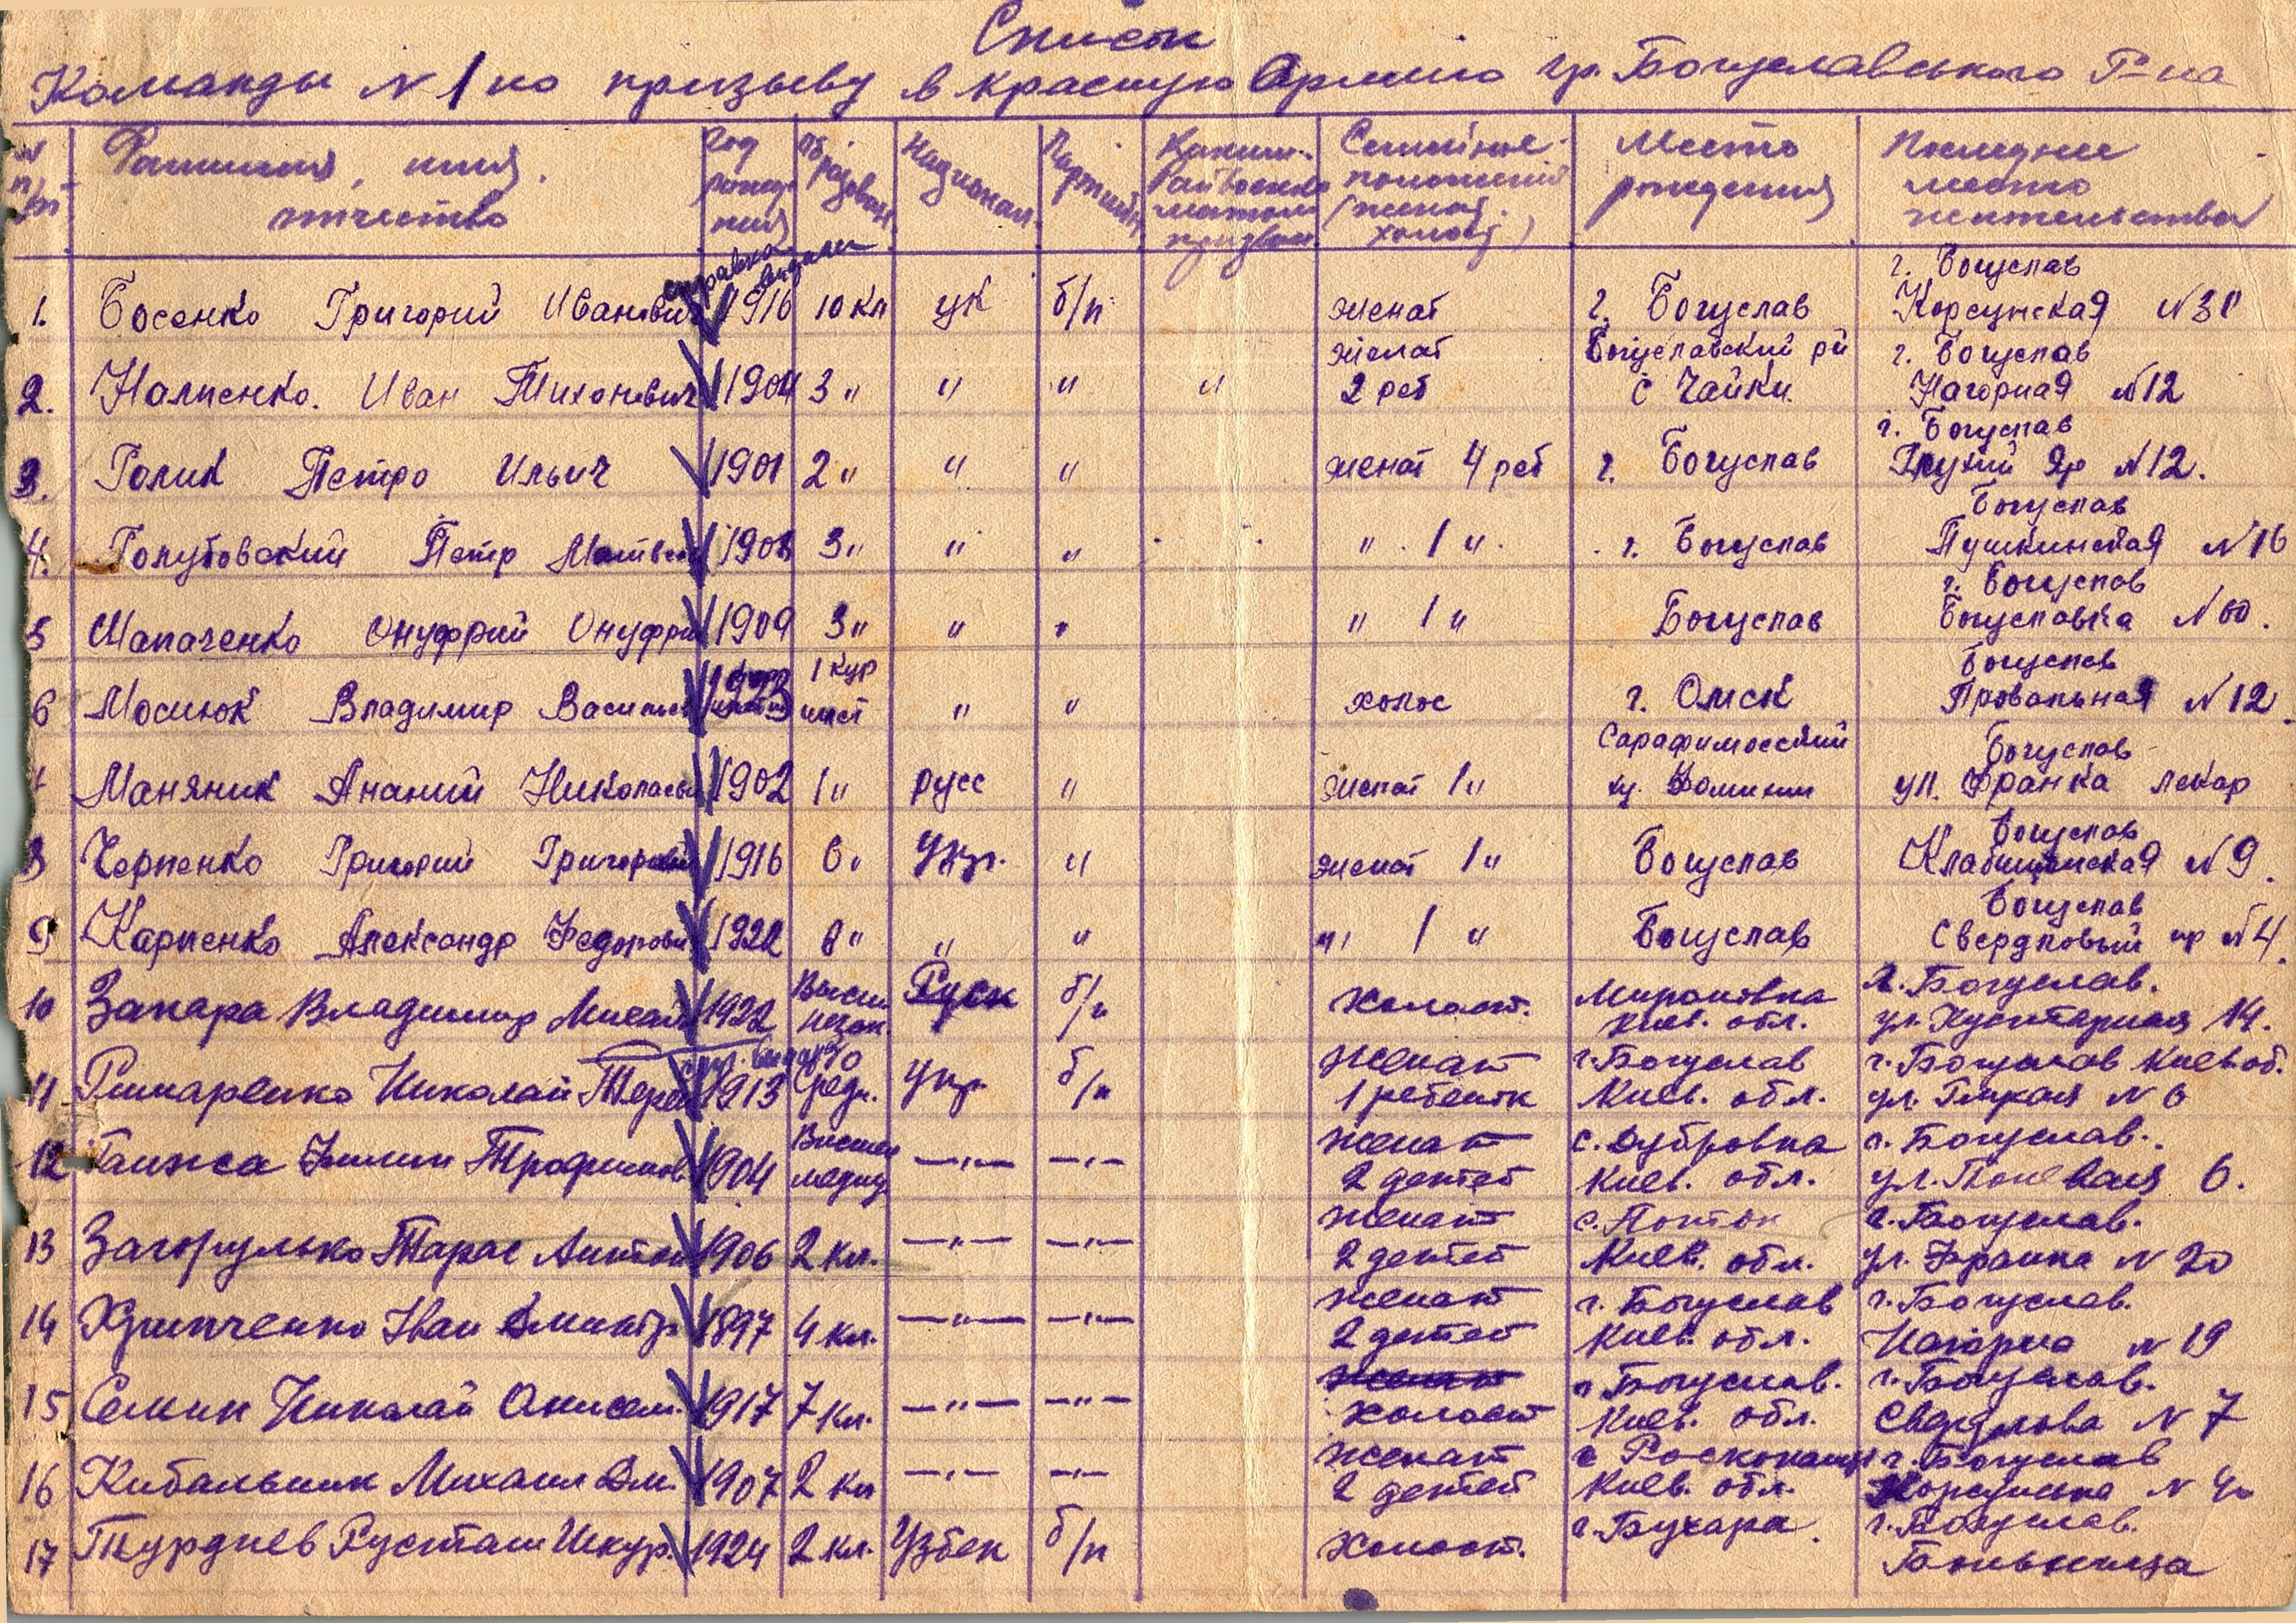 Список
Команды N 1 по призыву в красную Армию гр. Богуславського Р-на
N п/п
Фамилия, имя, отчество
год рождения
Образован
Национал.
Партийн
Каким Райвоенкоматом призван
Семейное положение (женат. холост)
Место рождения
Последнее место жительства
справка выдана
1. Босенко Григорий Иванович 1916 10 кл ук б/п женат г. Богуслав г. Богуслав Корсунская N 38
2. Налпенко. Иван Тиханович 1904 3 " " " " женат 2 реб Богуславский рй с Чайки. г. Богуслав Нагорная N 12
3. Голик Петро Ильич 1901 2 " " " женат 4 реб г. Богуслав г. Богуслав Глухий Яр N 12.
4. Голубовский Петр Матвеев 1908 3 " " " " 1 " г. Богуслав Богуслав Пушкинская N 16
5 Шапаченко Онуфрий Онуфри 1909 3 " " " " 1 " Богуслав г. Богуслав Богуславка N 60.
6 Мосиюк Владимир Васильев 1923 1 кур инст " " холос г. Омск Богуслав Провальная N 12.
Маняник Ананий Николаеви 1902 1 " русс " женат 1 " Богуслав ул. Франка лекар
8 Черпенко Григорий Григорови 1916 6 " Укр. " женат 1 " Богуслав Богуслав N 9.
9 Карпенко Александр Федорови 1922 8 " " " " 1 " Богуслав Богуслав Свердловый пр N 4.
10 Запара Владимир Михай 1922 Высш. незак. Руск б/п Холост. Мироновка Киев. обл. г. Богуслав. ул. Кустарная 14.
11 Римаренко Николай Тере 1913 Средн. укр. б/п Женат 1 ребенок г. Богуслав Киев. обл. г. Богуслав Киев об. ул. Глухая N 6
12 Филип Трофимов. 1904 Высшее медиц. —"— —"— Женат 2 детей с. Дубровка Киев. обл. г. Богуслав. ул. 6.
13 Загорулько Тарас Антон 1906 2 кл. —"— —"— Женат 2 детей с. Поток Киев. обл. г. Богуслав. ул. Франка N 20
14 Хрипченко Иван Дмитр. 1897 4 кл. —"— —"— Женат 2 детей г. Богуслав Киев. обл. г. Богуслав. Нагорна N 19
15 Семин Николай Онисим. 1917 7 кл. —"— —"— Женат Холост г. Богуслав. Киев. обл. г. Богуслав. Свердлова N 7
16 Кибальник Михаил Дм. 1907 2 кл —"— —"— Женат 2 детей с Росконанц Киев. обл. г. Богуслав Корсунска N 40
17 Турдиев Русташ Шкур. 1924 2 кл. Узбек б/п Холост. г. Бухара. г. Богуслав. Больница